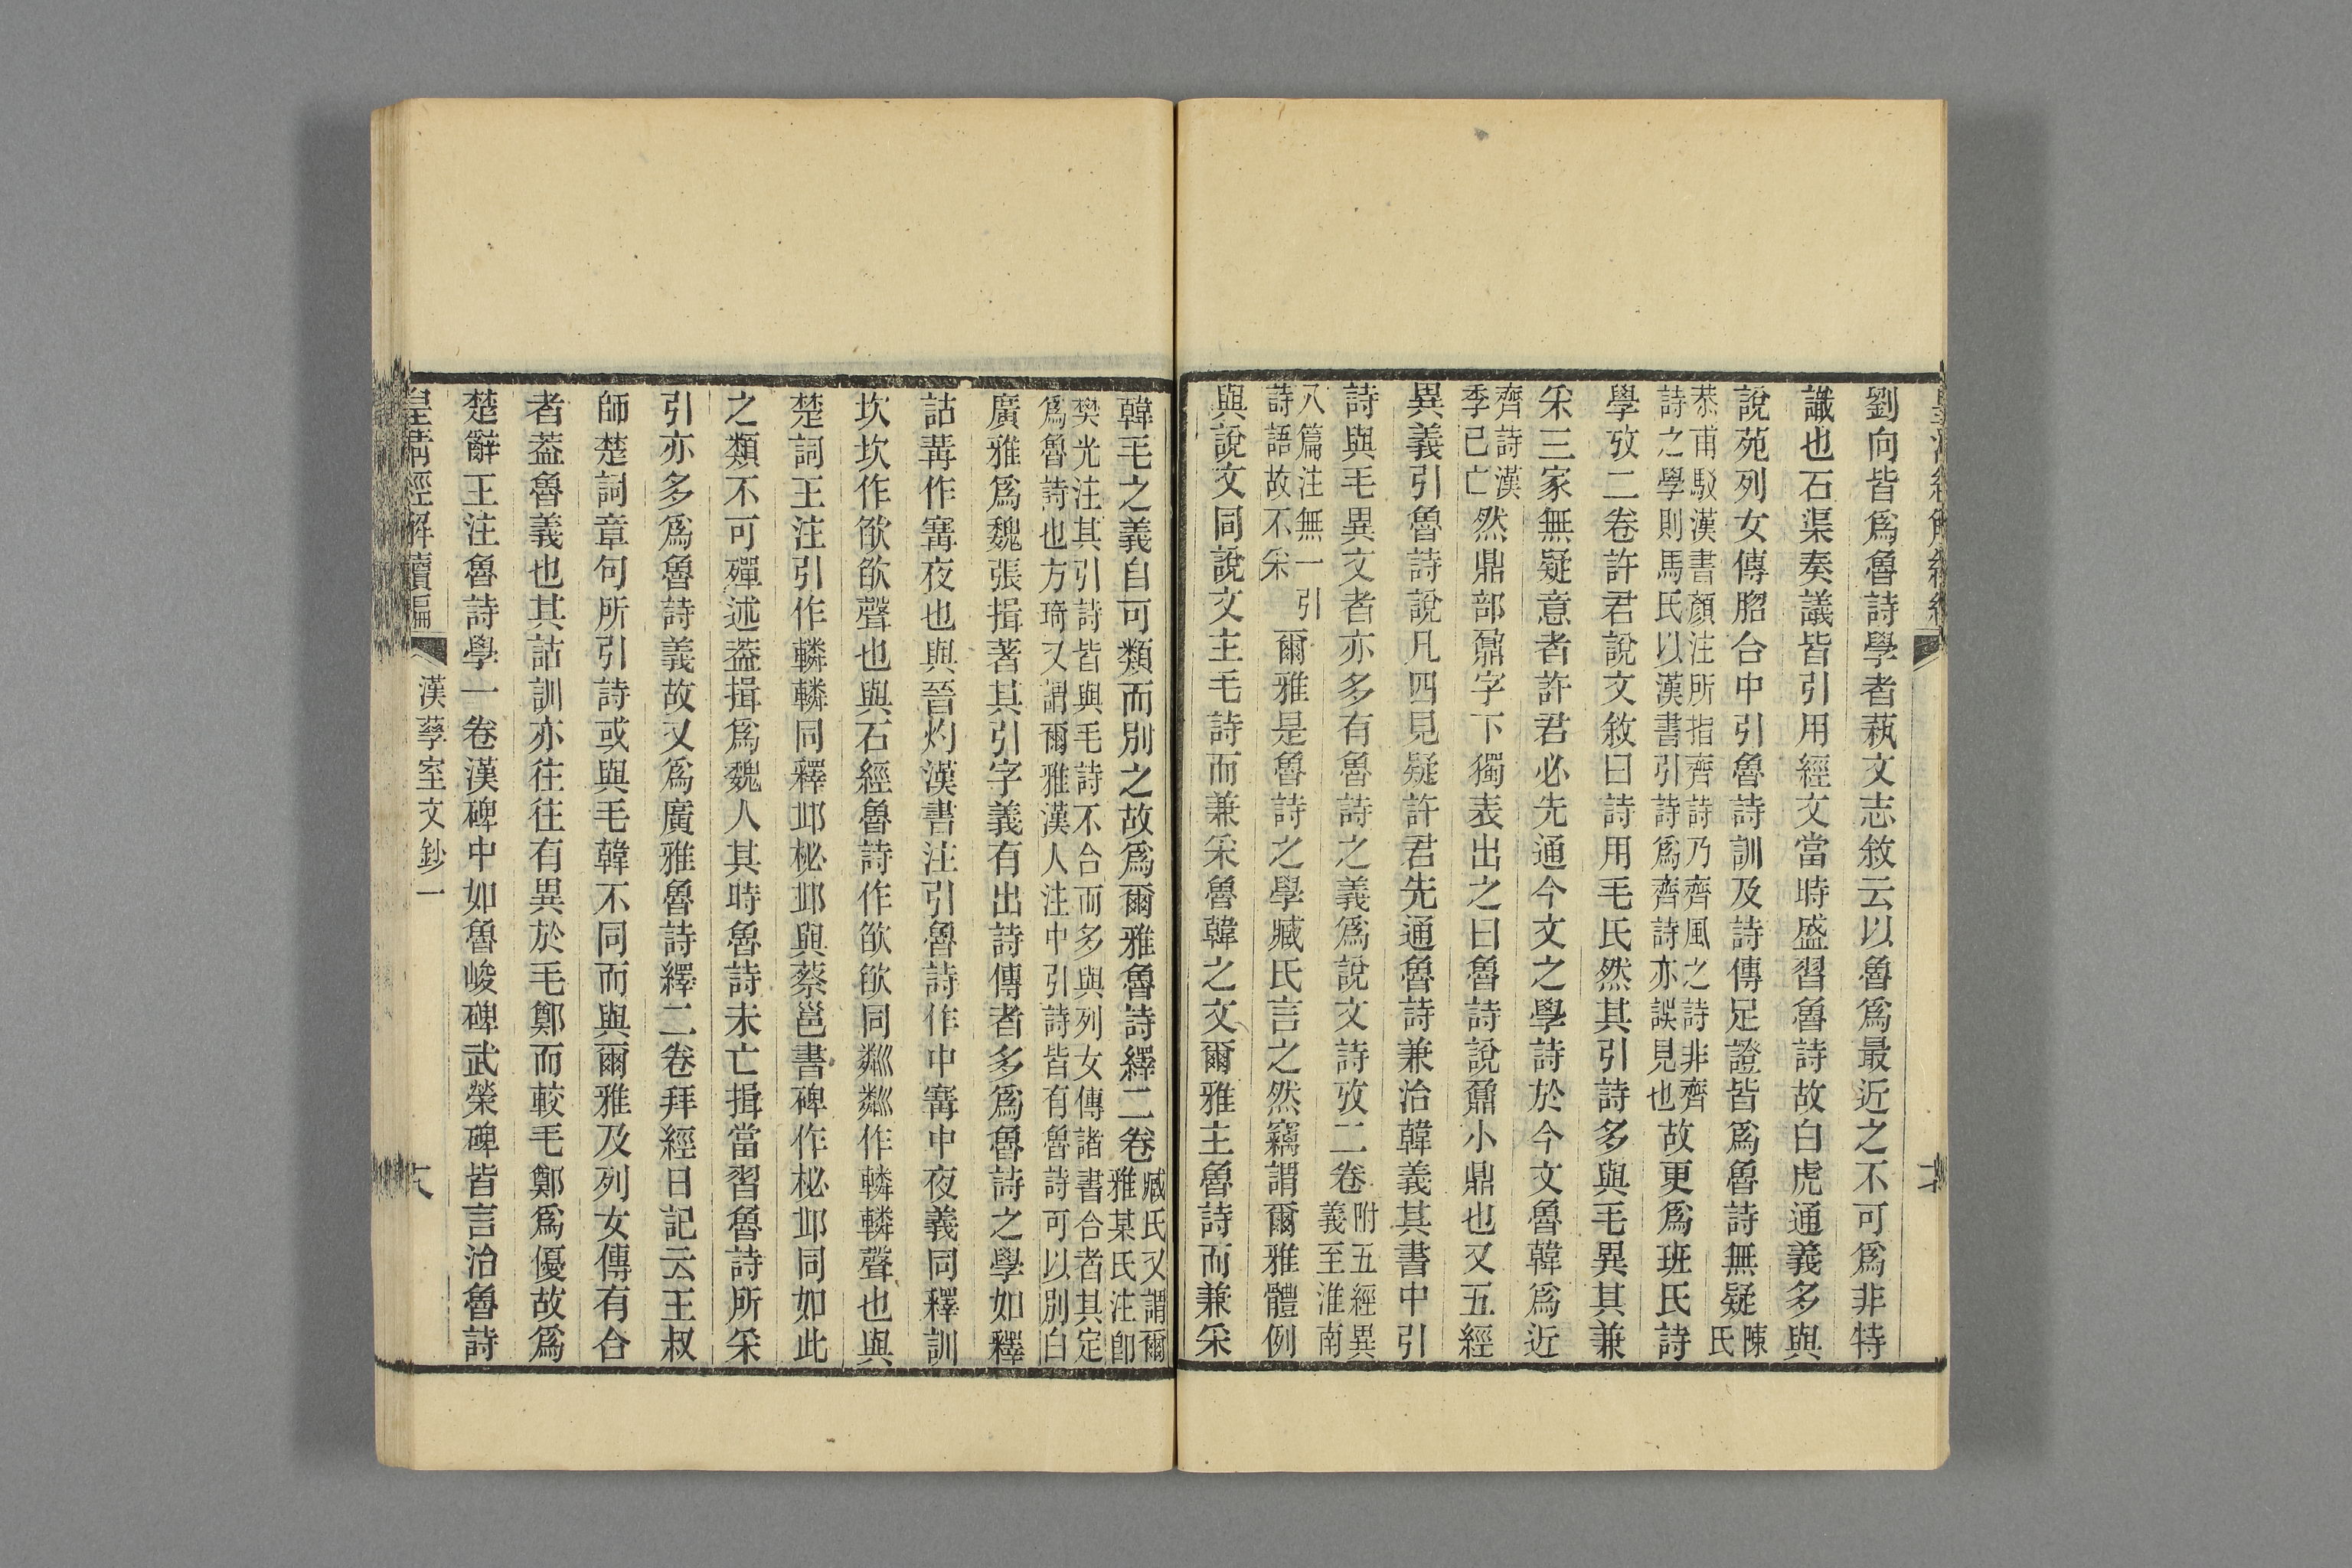 劉向皆爲魯詩學者蓺文志敘云以魯爲最近之不可爲非特
讖也石渠奏議皆引用經文當時盛習魯詩故白虎通義多與
說苑列女傳䐇合中引魯詩訓及詩傳足證皆爲魯詩無疑陳氏
恭甫駁漢書顏注所指齊詩乃齊風之詩非齊詩之學則馬氏以漢書引詩爲齊詩亦誤見也故更爲班氏詩
學攷二卷許君說文敘曰詩用毛氏然其引詩多與毛異其兼
采三家無疑意者許君必先通今文之學詩於今文魯韓爲近
齊詩漢季已亡然鼎部鼐字下獨表出之曰魯詩說鼐小鼎也又五經
異義引魯詩說凡四見疑許君先通魯詩兼治韓義其書中引
詩與毛異文者亦多有魯詩之義爲說文詩攷二卷附五經異義至淮南
八篇注無一引詩語故不采爾雅是魯詩之學臧氏言之然竊謂爾雅體例
與說文同說文主毛詩而兼采魯韓之文爾雅主魯詩而兼采
韓毛之義自可類而別之故爲爾雅魯詩繹二卷臧氏又謂爾雅某氏注卽
樊光注其引詩皆與毛詩不合而多與列女傳諸書合者其定爲魯詩也方琦又謂爾雅漢人注中引詩皆有魯詩可以別白
廣雅爲魏張揖著其引字義有出詩傳者多爲魯詩之學如釋
詁冓作寱夜也與晉灼漢書注引魯詩作中冓中夜義同釋訓
坎坎作欿欿聲也與石經魯詩作欿欿同粼粼作轔轔聲也與
楚詞王注引作轔轔同釋邶柲邶與蔡邕書碑作柲邶同如此
之類不可殫述葢揖爲魏人其時魯詩未亡揖當習魯詩所采
引亦多爲魯詩義故又爲廣雅魯詩繹二卷拜經日記云王叔
師楚詞章句所引詩或與毛韓不同而與爾雅及列女傳有合
者葢魯義也其詁訓亦往往有異於毛鄭而較毛鄭爲優故爲
楚辭王注魯詩學一卷漢碑中如魯峻碑武榮碑皆言治魯詩
皇淸經解續編
漢孳室文鈔一